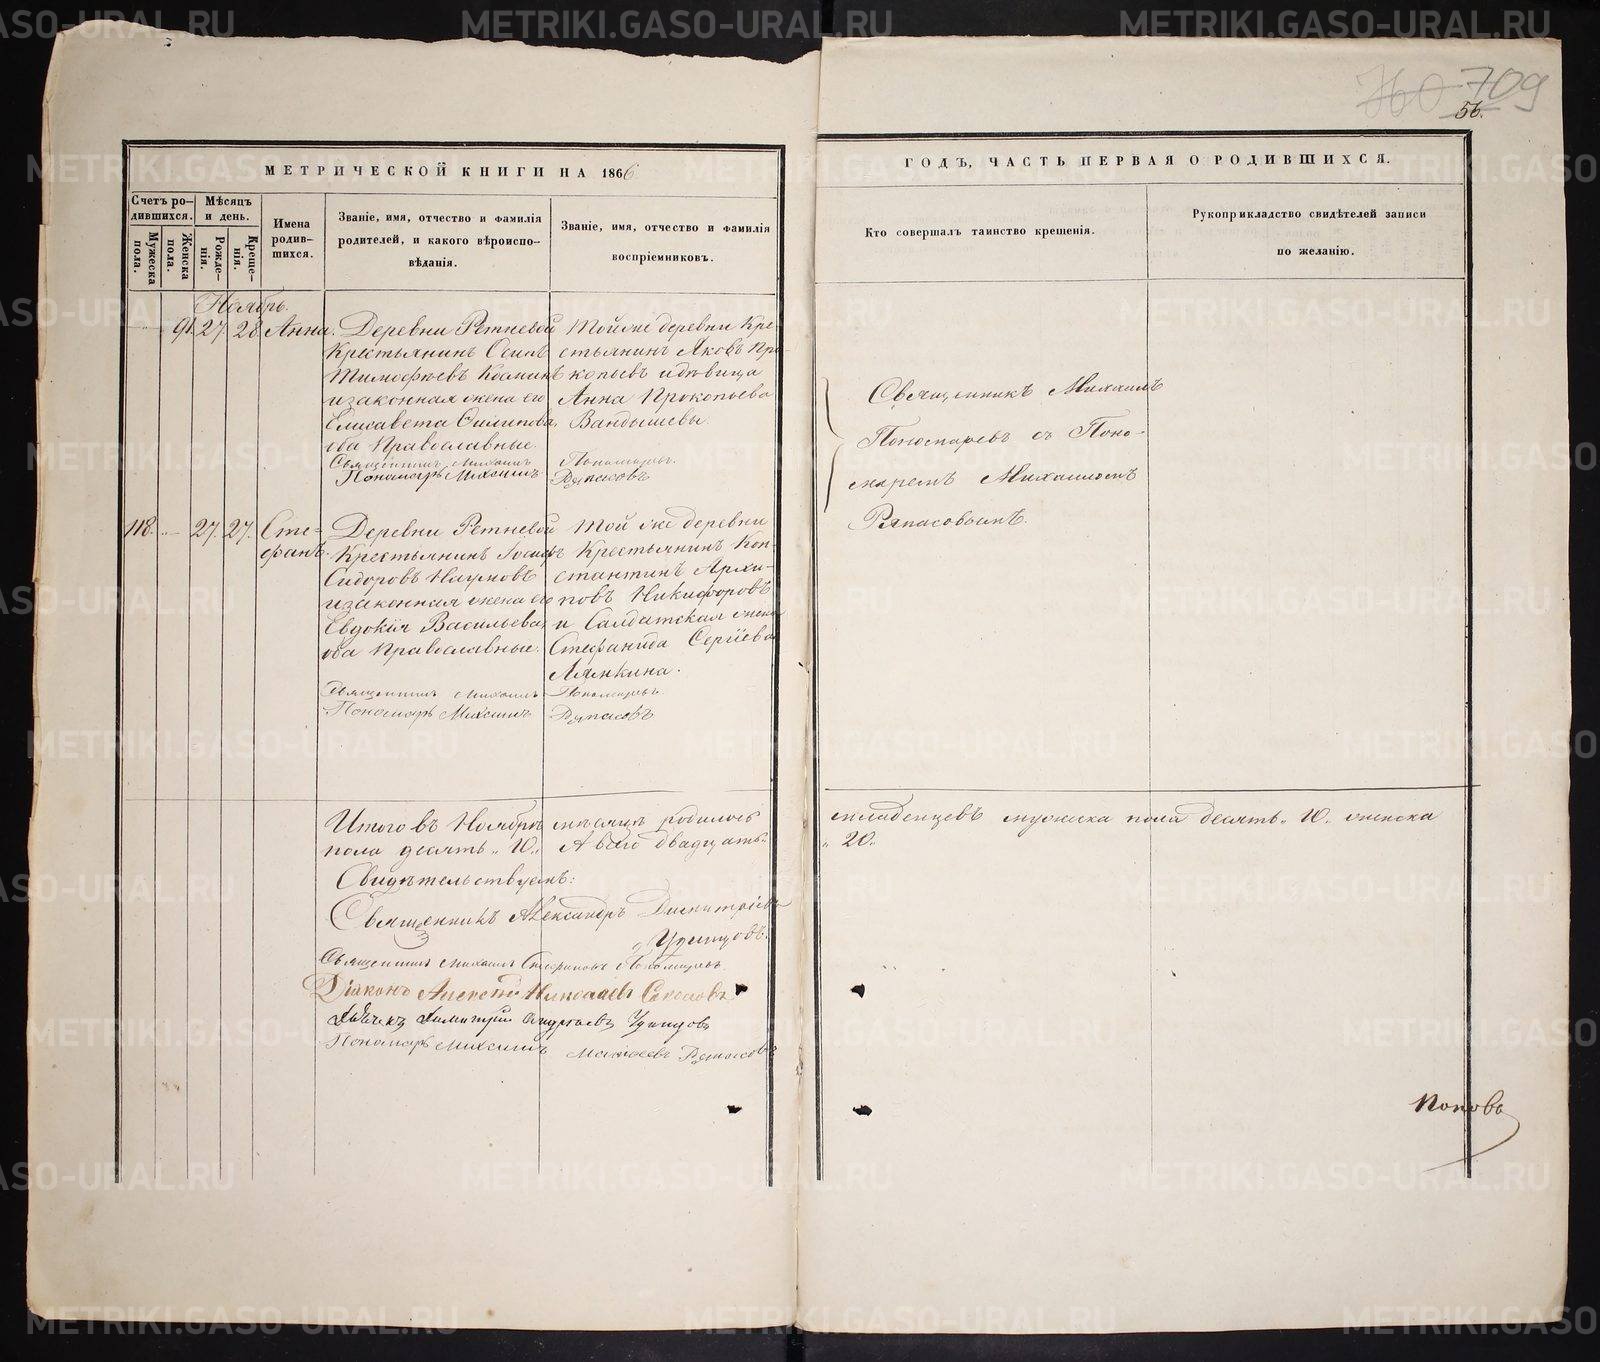 709
56.
МЕТРИЧЕСКОЙ КНИГИ НА 1866
ГОДЪ, ЧАСТЬ ПЕРВАЯ О РОДИВШИХСЯ.
Счетъ ро-
дившихся.
Мужеска пола.
Женска пола.
Мѣсяцъ
и день.
Рожде-
нія.
Креще-
нія.
Имена
родив-
шихся.
Званіе, имя, отчество и фамилія
родителей, и какого вѣроиспо-
вѣданія.
Званіе, имя, отчество и фамилія
воспріемниковъ.
Кто совершалъ таинство крещенія.
Рукоприкладство свидѣтелей записи
по желанію.
Ноябрь.
91. 27. 28. Анна.
Деревни Ретневой
Крестьянинъ Осипъ
Тимофѣевъ
и законная жена его
Елисавета Филипова,
оба Православные.
Священникъ Михаилъ Пономаревъ.
Пономарь Михаилъ Ряпасовъ
Той же деревни Кре-
стьянинъ Яковъ Про-
копьевъ и дѣвица
Анна Прокопьева
Вандышевы.
Священникъ Михаилъ
Пономаревъ съ Поно-
маремъ Михаиломъ
Ряпасовымъ.
118. 27. 27. Сте-
фанъ.
Деревни Ретневой
Крестьянинъ
Сидоровъ Наумовъ
и законная жена его
Евдокія Васильева,
оба Православные.
Той же деревни
Крестьянинъ Кон-
стантинъ Архи-
повъ Никифоровъ
и Салдатская жена
Стефанида Сергіева
Лямкина.
Священникъ Михаилъ Пономаревъ.
Пономарь Михаилъ Ряпасовъ
Итого въ Ноябрѣ мѣсяцѣ родилось младенцевъ мужеска пола десять „10„ женска
пола десять „10„ А всего двадцать „20„
Свидѣтельствуемъ:
Священникъ Александръ Димитріевъ
Удинцовъ.
Священникъ Михаилъ Стефановъ Пономаревъ.
Діаконъ Алексѣй Николаевъ Соколовъ
Дьячекъ Димитрій Андреевъ Удинцовъ
Пономарь Михаилъ Матвѣевъ Ряпасовъ
Поповъ
METRIKI.GASO-URAL.RU